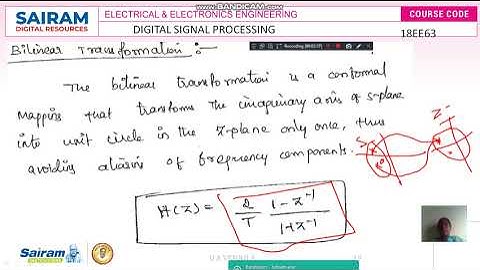 WWW.BANDICAM.COM
SAIRAM
DIGITAL RESOURCES
ELECTRICAL & ELECTRONICS ENGINEERING
COURSE CODE
DIGITAL SIGNAL PROCESSING
18EE63
Bilinear Transformation :-
The bilinear transformation is a conformal
mapping that transforms the imaginary axis of s-plane
into unit circle in the z-plane only once, thus
avoiding aliasing of frequency components.
S
Z
H(z) = 2/T 1-z⁻¹/1+z⁻¹
Sairam